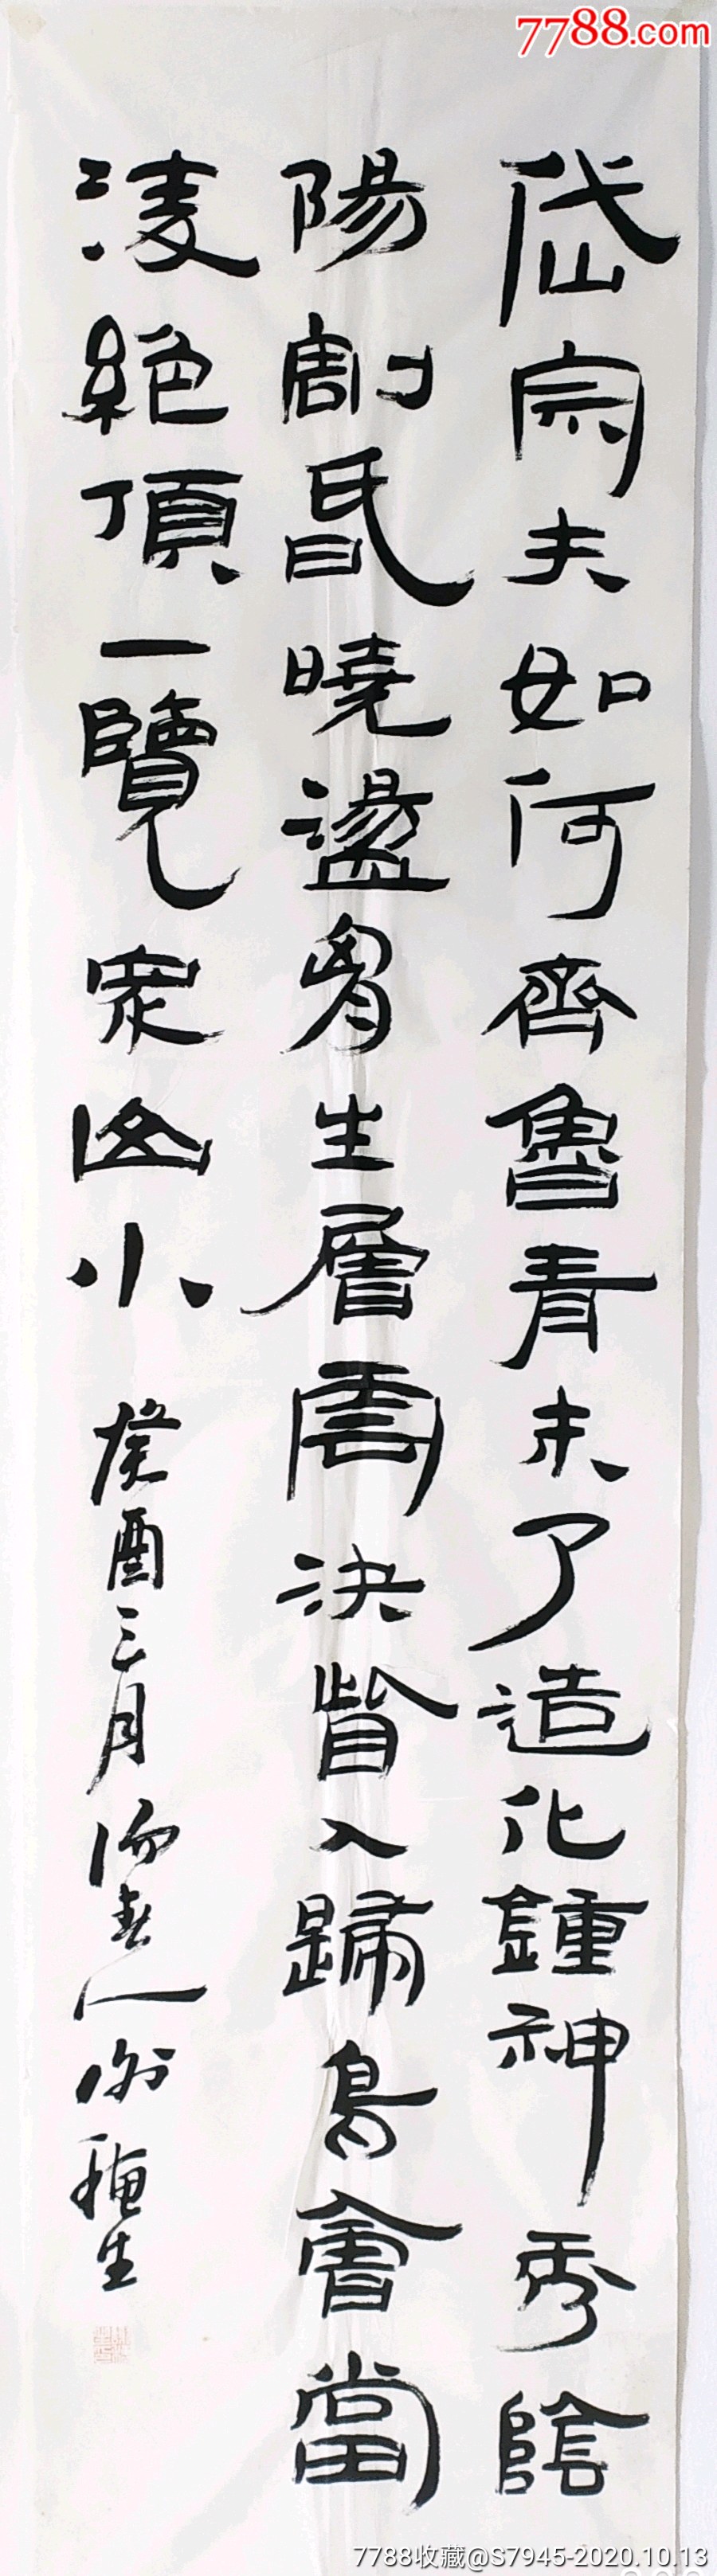 7788.com
岱宗夫如何齊魯青未了造化鍾神秀陰
陽割昏曉盪胷生層雲決眥入歸鳥會當
凌絶頂一覽眾山小 癸酉三月
7788收藏@S7945-2020.10.13